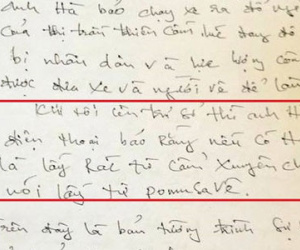 Anh Hà báo chạy xe ra đổ ngo
Của thị trấn Thiên Cầm
bị nhân dân và lực lượng côn
được đưa xe và người về để làm
Khi tôi lên trụ sở thì anh H
điện thoại báo rằng nếu có H
là lấy Rác từ Cẩm Xuyên ch
nói lấy từ pormsave.
trên đây là bản tường trình sự